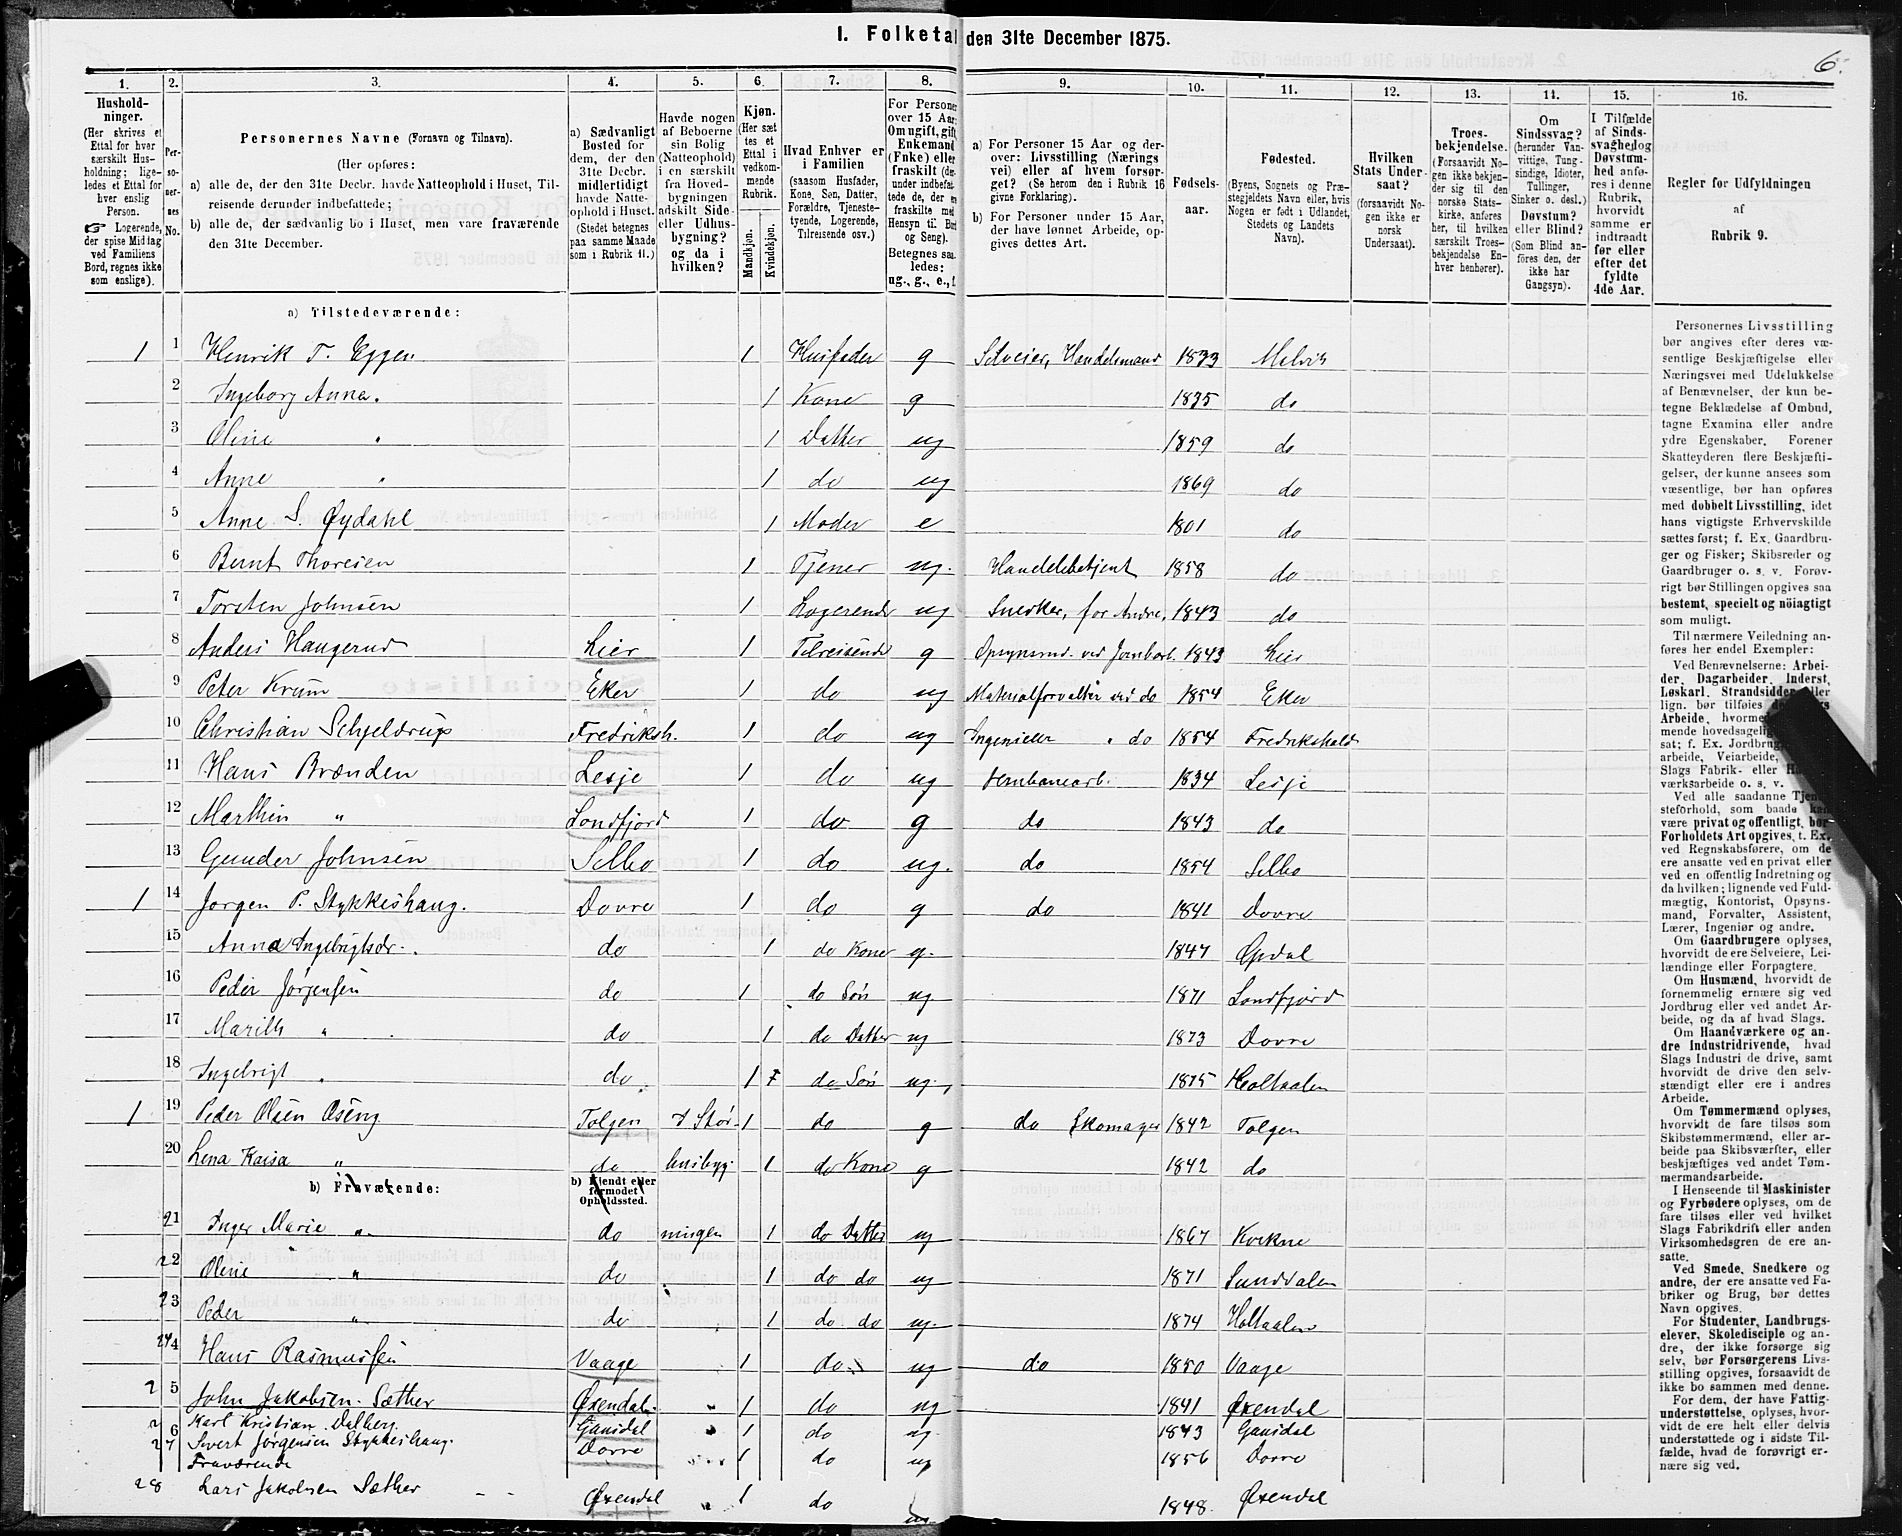 I. Folketal den 31te December 1875.
6.
1. 2. 3. 4. 5. 6. 7. 8. 9. 10. 11. 12. 13. 14. 15. 16.
Hushold-
ninger.
(Her skrives et
Ettal for hver
særskilt Hus-
holdning; lige-
ledes et Ettal for
hver enslig
Person.
☞ Logerende,
der spise Middag
ved Familiens
Bord, regnes ikke
som enslige).
Per-
so-
ner-
nes
No.
Personernes Navne (Fornavn og Tilnavn).
(Her opføres:
a) alle de, der den 31te Decbr. havde Natteophold i Huset, Til-
reisende derunder indbefattede;
b) alle de, der sædvanlig bo i Huset, men vare fraværende
den 31te December.
a) Sædvanligt
Bosted for
dem, der den
31te Decbr.
midlertidigt
havde Natte-
ophold i Huset.
(Stedet betegnes
paa samme Maade
som i Rubrik 11.)
Havde nogen
af Beboerne
sin Bolig
(Natteophold)
i en særskilt
fra Hoved-
bygningen
adskilt Side-
eller Udhus-
bygning?
og da i
hvilken?
Kjøn.
(Her sæt-
tes et
Ettal i
vedkom-
mende
Rubrik.
Mandkjøn.
Kvindekjøn.
Hvad Enhver er
i Familien
(saasom Husfader,
Kone, Søn, Datter,
Forældre, Tjeneste-
tyende, Logerende,
Tilreisende osv.)
For Personer
over 15 Aar:
Om ugift, gift
Enkemand
(Enke) eller
fraskilt
Betegnes saa-
ledes:
ug., g., e., f.
a) For Personer 15 Aar og der-
over: Livsstilling (Nærings
vei) eller af hvem forsør-
get? (Se herom den i Rubrik 16
givne Forklaring).
b) For Personer under 15 Aar,
der have lønnet Arbeide, op-
gives dettes Art.
Fødsels-
aar.
Fødested.
(Byens, Sognets og Præ-
stegjeldets Navn eller, hvis
Nogen er født i Udlandet,
Stedets og Landets
Navn).
Hvilken
Stats Under-
saat?
(forsaavidt No-
gen ikke er
norsk
Undersaat).
Troes-
bekjendelse.
(Forsaavidt No-
gen ikke bekjen-
der sig til den
norske Stats-
kirke, anføres
her, til hvilken
særskilt Troes-
bekjendelse En-
hver henhører).
Om
Sindssvag?
(herunder Van-
vittige, Tung-
sindige, Idioter,
Tullinger,
Sinker o. desl.)
Døvstum?
eller Blind?
(Som Blind an-
føres den, der
ikke har
Gangsyn).
I Tilfælde
af Sinds-
svaghed og
Døvstum-
hed anfø-
res i denne
Rubrik,
hvorvidt
samme er
indtraadt
før eller
efter det
fyldte
4de Aar.
Regler for Udfyldningen
af
Rubrik 9.
a) Tilstedeværende:
1 1 Henrik T. Eggen 1 Husfader g Selveier, Handelsmand 1833 Malvik
2 Ingeborg Anna. 1 Kone g 1835 do
3 Oline " 1 Datter ug 1859 do
4 Anne " 1 do ug 1869 do
5 Anne S. Øydahl 1 Moder e 1801 do
6 Bernt Thoresen 1 Tjener ug. Handelsbetjent 1858 do
7 Torsten Johnsen 1 Logerende ug Snedker, for Andre, 1843 do
8 Anders Haugerud Lier 1 Tilreisende g Opsynsmd. ved Jernbarb. 1843 Lier
9 Peter Krum Eker 1 do ug Materialforvalter ved do 1854 Eker
10 Christian Schjeldrup Fredriksh. 1 do ug Ingeniør " do 1854 Fredrikshald
11 Hans Brænden Lesje 1 do ug Jernbanearb. 1834 Lesje
12 Marthin " Sondfjord 1 do g do 1843 do
13 Gunder Johnsen Selbo 1 do ug. do 1854 Selbo
1 14 Jørgen P. Stykkeshaug. Dovre 1 do g do 1841 Dovre
15 Anna Ingebrigtsdr. do 1 do Kone g. 1847 Opdal
16 Peder Jørgensen do 1 do Søn ug 1871 Sondfjord
17 Marith " do 1 do Datter ug 1873 Dovre
18 Ingebrigt " do 1 do Søn ug. 1875 Holtaalen
1 19 Peder Olsen Øseng Tolgen I Stør- 1 do g do Skomager 1842 Tolgen
20 Lena Kaisa " do husbyg- 1 do Kone g 1842 do
b) Fraværende:
b) Kjendt eller
formodet
Opholdssted.
21 Inger Marie " do ningen 1 do Datter ug 1867 Kvikne
22 Oline " do 1 do do ug 1871 Sundalen
23 Peder " do 1 do do ug. 1874 Holtaalen
24 Hans Rasmussen Vaage 1 do ug do 1850 Vaage
25 John Jakobsen Sæther Øxendal. " 1 do ug 1841 Øxendal
26 Karl Kristian Dalberg. Gausdal " 1 do ug. 1843 Gausdal
27 Sivert Jørgensen Stykkeshaug. Dovre 1 do ug 1856 Dovre
Fraværende
28 Lars Jakobsen Sæther Øxendal " 1 do ug. 1848. Øxendal
Personernes Livsstilling
bør angives efter deres væ-
sentlige Beskjæftigelse eller
Næringsvei med Udelukkelse
af Benævnelser, der kun be-
tegne Beklædelse af Ombud,
tagne Examina eller andre
ydre Egenskaber. Forener
Skatteyderen flere Beskjæfti-
gelser, der kunne ansees som
væsentlige, bør han opføres
med dobbelt Livsstilling, idet
hans vigtigste Erhvervskilde
sættes først; f. Ex. Gaardbru-
ger og Fisker; Skibsreder og
Gaardbruger o. s. v. Forøv-
rigt bør Stillingen opgives saa
bestemt, specielt og nöiagtigt
som muligt.
Til nærmere Veiledning an-
føres her endel Exempler:
Ved Benævnelserne: Arbei-
der, Dagarbeider, Inderst,
Løskarl, Strandsidder eller
lign. bør tilføies
Arbeide, hvorme
mende hovedsagelig
sat; f. Ex. Jordbrug
arbeide, Veiarbeide,
Slags Fabrik- eller
værksarbeide o. s. v.
Ved alle saadanne Tjene-
steforhold, som baade kan
være privat og offentligt, bør
Forholdets Art opgives, t. Ex.
ved Regnskabsførere, om de
ere ansatte ved en privat eller
ved en offentlig Indretning og
da hvilken; lignende ved Fuld-
mægtig, Kontorist, Opsyns-
mand, Forvalter, Assistent,
Lærer, Ingeniør og andre.
Om Gaardbrugere oplyses,
hvorvidt de ere Selveiere, Lei-
lændinge eller Forpagtere.
Om Husmænd, hvorvidt de
fornemmelig ernære sig ved
Jordbrug eller ved andet Ar-
beide, og da af hvad Slags.
Om Haandværkere og an-
dre Industridrivende, hvad
Slags Industri de drive, samt
hvorvidt de drive den selv-
stændigt eller ere i andres
Arbeide.
Om Tømmermænd oplyses,
hvorvidt de fare tilsøs som
Skibstømmermænd, eller ar-
beide paa Skibsværfter, eller
beskjæftiges ved andet Tøm-
mermandsarbeide.
I Henseende til Maskinister
og Fyrbødere oplyses, om de
fare tilsøs eller ved hvilket
Slags Fabrikdrift eller anden
Virksomhedsgren de ere an-
satte.
Ved Smede, Snedkere og
andre, der ere ansatte ved Fa-
briker og Brug, bør dettes
Navn opgives.
For Studenter, Landbrugs-
elever, Skoledisciple og an-
dre, der ikke forsørge sig
selv, bør Forsørgerens Livs-
stilling opgives, forsaavidt de
ikke bo sammen med denne.
For dem, der have Fattig-
understøttelse, oplyses, hvor-
vidt de ere helt eller delvis
understøttede og i sidste Til-
fælde, hvad de forøvrigt er-
nære sig ved.